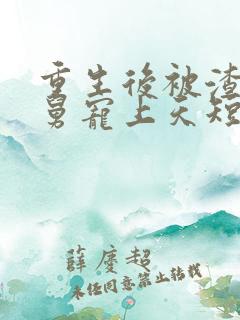 重生後被渣
舅寵上天短
薛慶超
未经同意禁止转载